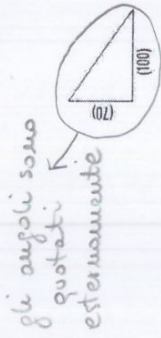 gli angoli sono
quotati
esternamente
(70)
(100)